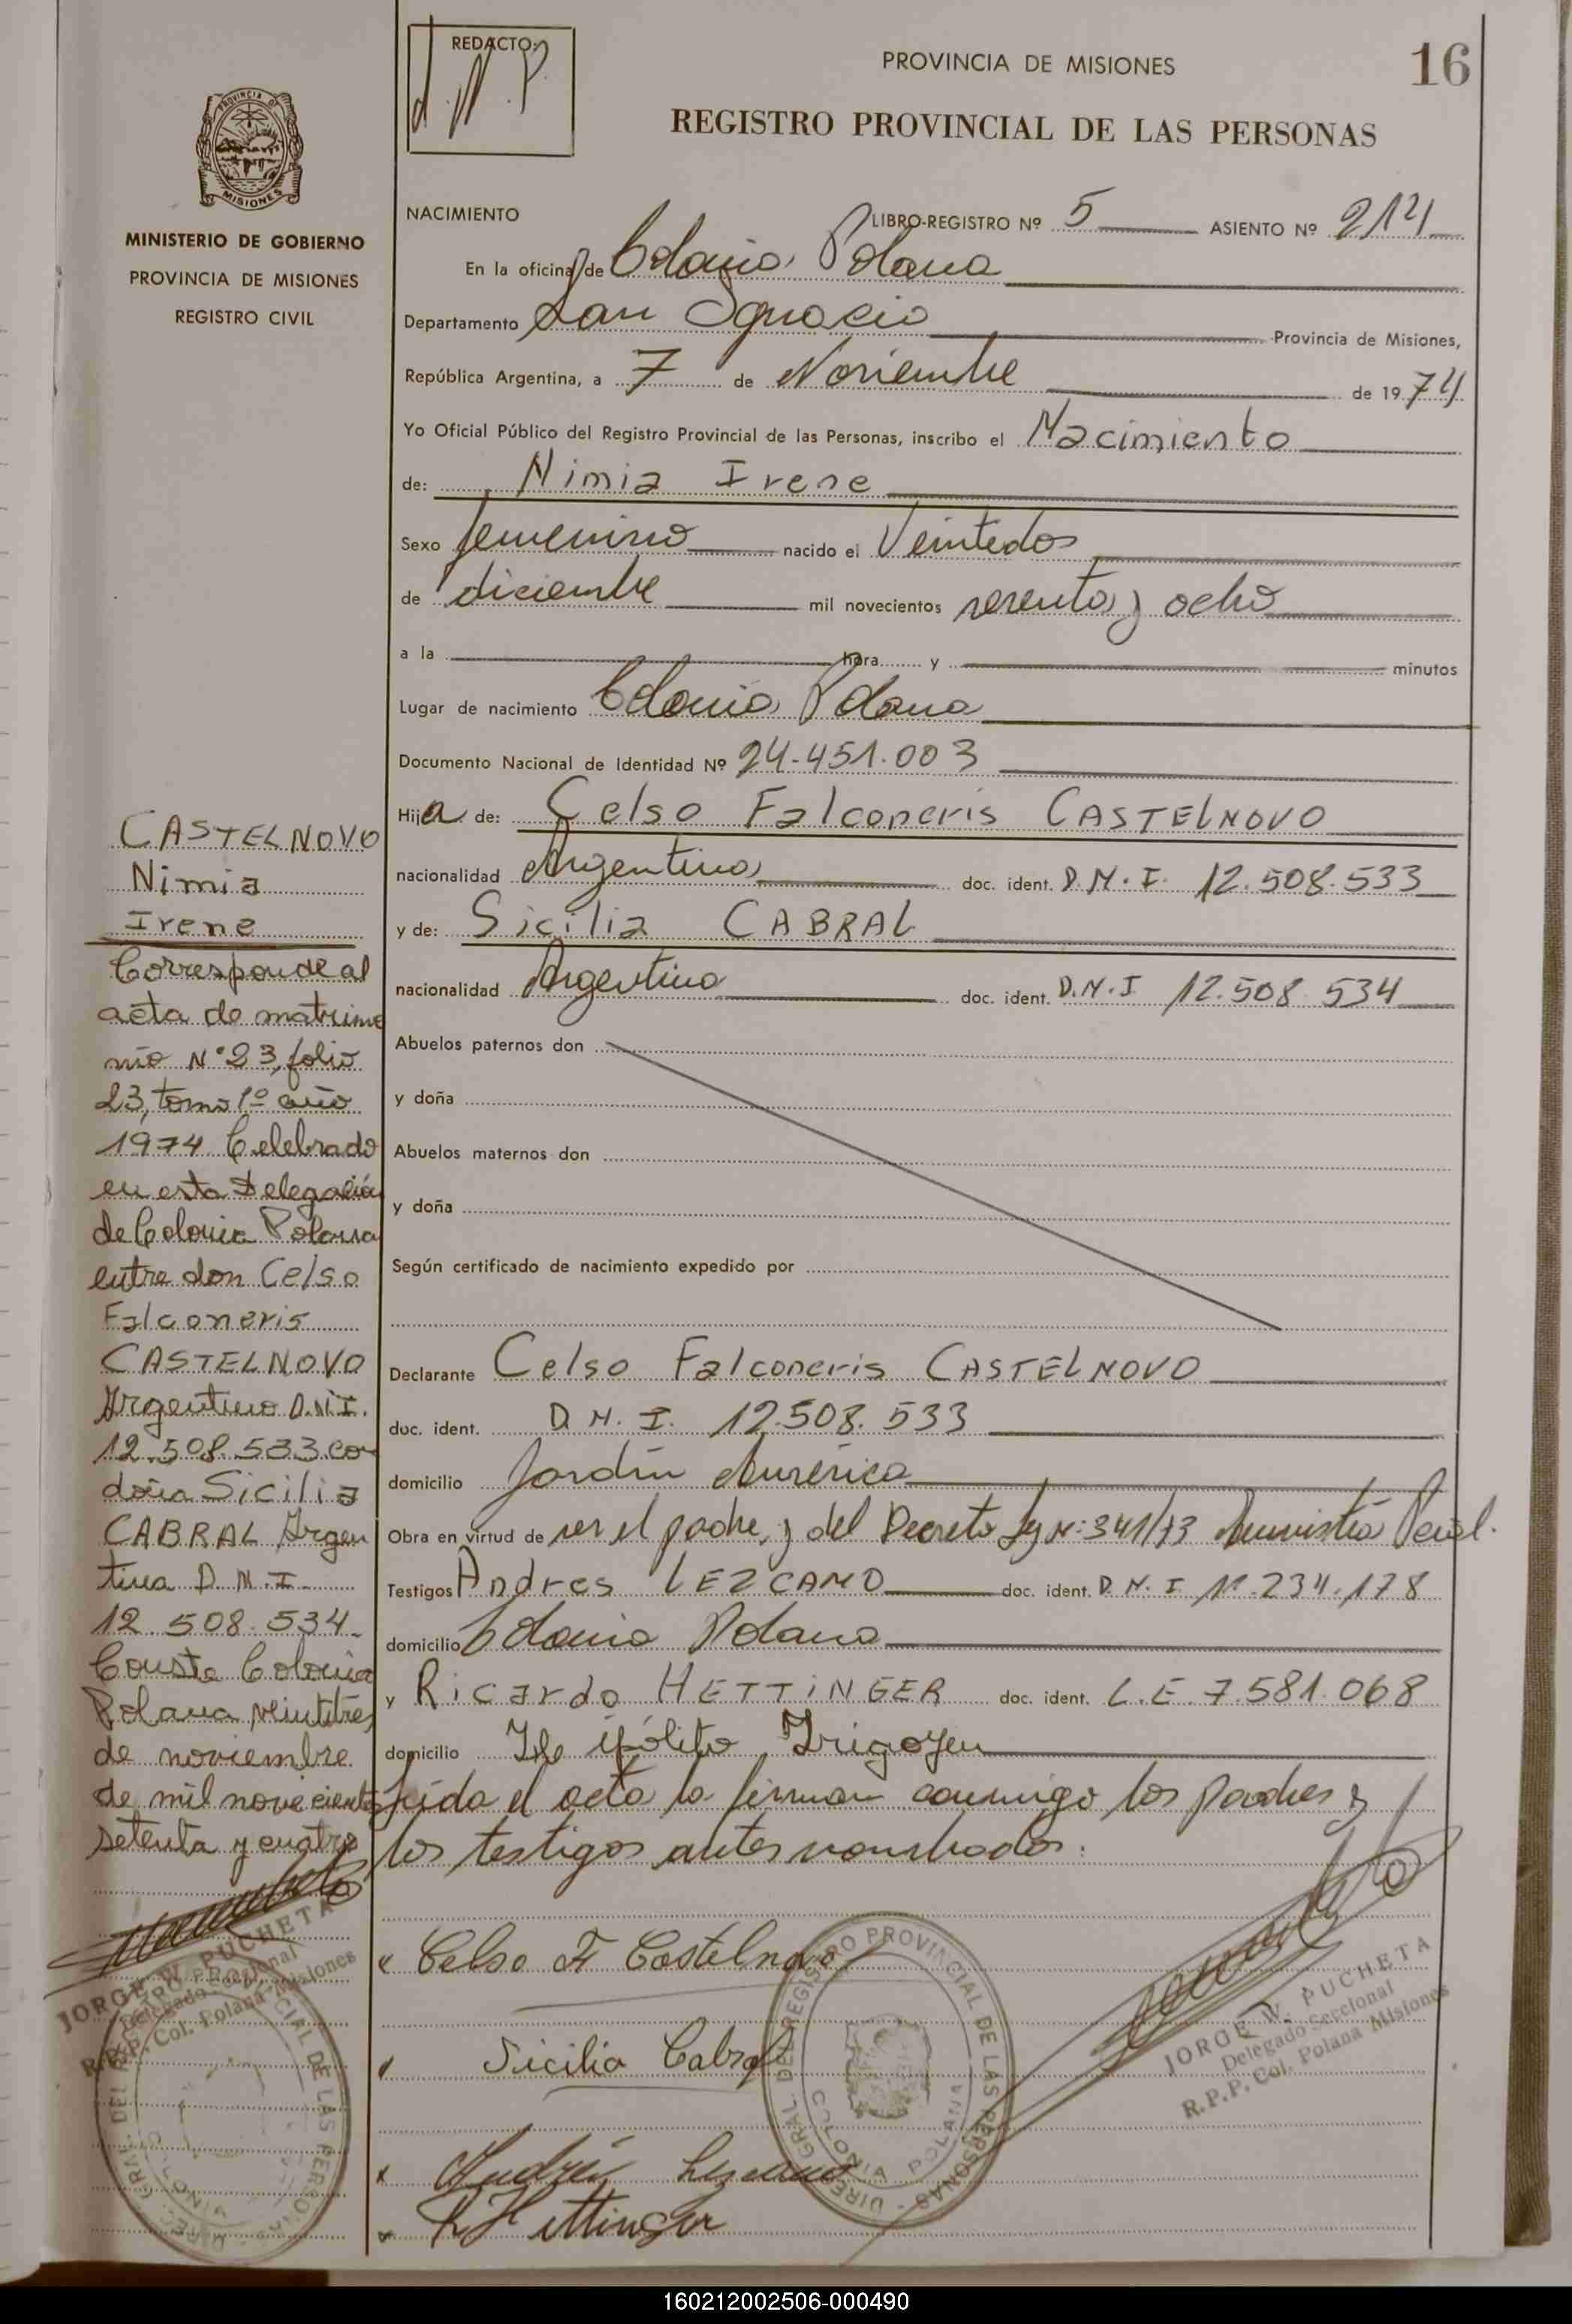 REDACTO:
J.N.P.
PROVINCIA DE MISIONES
16
REGISTRO PROVINCIAL DE LAS PERSONAS
PROVINCIA DE
MISIONES
MINISTERIO DE GOBIERNO
PROVINCIA DE MISIONES
REGISTRO CIVIL
NACIMIENTO LIBRO-REGISTRO Nº 5 ASIENTO Nº 214
En la oficina de Colonia Polana
Departamento San Ignacio Provincia de Misiones,
República Argentina, a 7 de Noviembre de 1974
Yo Oficial Público del Registro Provincial de las Personas, inscribo el Nacimiento
de: Nimia Irene
Sexo femenino nacido el Veintedos
de diciembre mil novecientos sesenta y ocho
a la hora y minutos
Lugar de nacimiento Colonia Polana
Documento Nacional de Identidad Nº 24.451.003
Hija de: Celso Falconeris CASTELNOVO
nacionalidad Argentina doc. ident. D.N.I. 12.508.533
y de: Sicilia CABRAL
nacionalidad Argentina doc. ident. D.N.I 12.508.534
Abuelos paternos don
y doña
Abuelos maternos don
y doña
Según certificado de nacimiento expedido por
Declarante Celso Falconeris CASTELNOVO
doc. ident. D.N.I. 12.508.533
domicilio Jardín América
Obra en virtud de ser el padre, y del Decreto Ley Nº 341/73 Amnistía
Testigos Andres LEZCANO doc. ident. D.N.I 11.234.178
domicilio Colonia Polana
y Ricardo HETTINGER doc. ident. L.E. 7.581.068
domicilio Hipólito Irigoyen
Leida el acta la firman conmigo los padres y
los testigos antes nombrados.
CASTELNOVO
Nimia
Irene
Corresponde al
acta de matrimo
nio Nº 23, folio
23, tomo 1º año
1974 Celebrado
en esta Delegación
de Colonia Polana
entre don Celso
Falconeris
CASTELNOVO
Argentino D.N.I.
12.508.533 con
doña Sicilia
CABRAL Argen
tina D.N.I.
12.508.534.
Conste Colonia
Polana veintitres
de noviembre
de mil novecientos
setenta y cuatro
JORGE W. PUCHETA
Delegado Seccional
R.P.P. Col. Polana Misiones
Celso F Castelnovo
Sicilia Cabral
Andrés Lezcano
R Hettinger
DIREC. GRAL. DEL REGISTRO PROVINCIAL DE LAS PERSONAS
COLONIA POLANA
JORGE W. PUCHETA
Delegado Seccional
R.P.P. Col. Polana Misiones
160212002506-000490